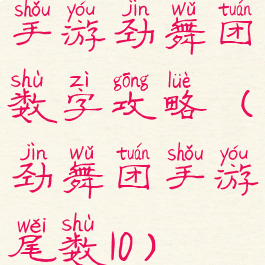 shǒu yóu jìn wǔ tuán
手游劲舞团
shù zì gōng lüè
数字攻略（
jìn wǔ tuán shǒu yóu
劲舞团手游
wěi shù
尾数10）